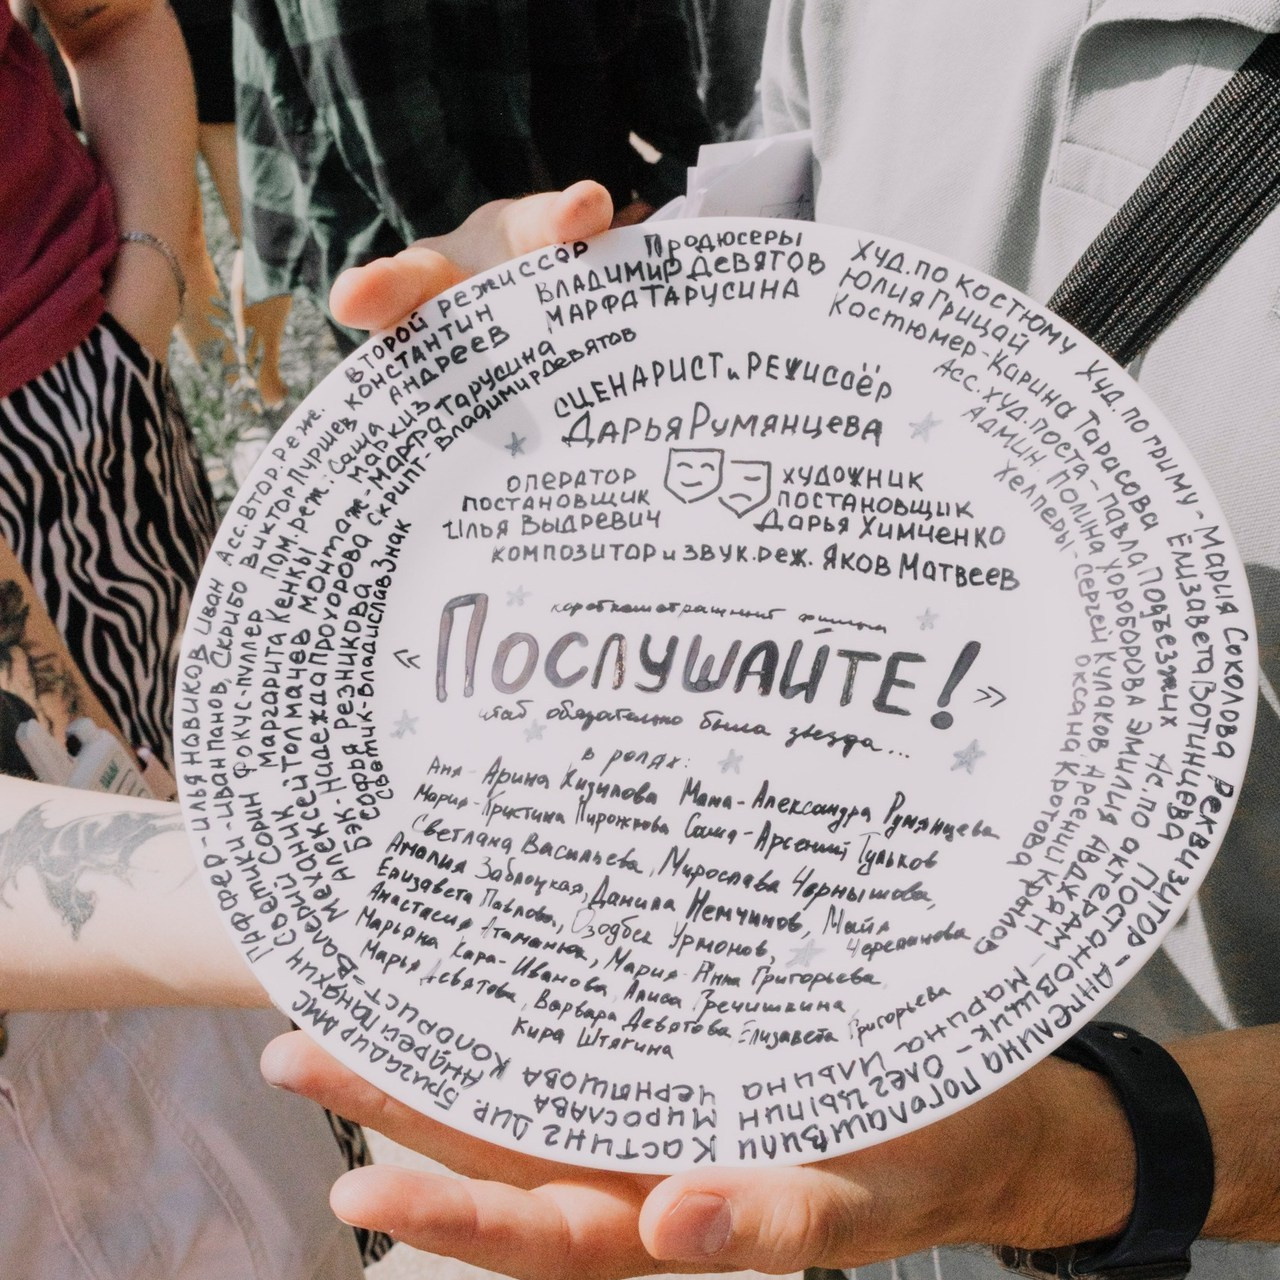 Продюсеры
Владимир Девятов
Марфа Тарусина
Второй режиссёр
Константин
Андреев
Сценарист и режиссёр
Дарья Румянцева
оператор
постановщик
Илья Выдревич
художник
постановщик
Дарья Химченко
композитор и звук.реж. Яков Матвеев
короткометражный фильм
« Послушайте! »
чтоб обязательно была звезда...
в ролях:
Аня - Арина Кизилова Мама - Александра Румянцева
Мария - Кристина Пирожкова Саша - Арсений Тульков
Светлана Васильева, Мирослава Чернышова,
Амалия Заблоцкая, Данила Немчинов, Майя Черепанова
Елизавета Павлова, Озодбек Урмонов,
Анастасия Атаманюк, Мария-Анна Григорьева,
Марьяна Кара-Иванова, Алиса Гречишкина
Марья Девятова, Варвара Девятова Елизавета Григорьева
Кира Штягина
Худ.по костюму
Юлия Грицай
Костюмер - Карина Тарасова
Худ.по гриму - Мария Соколова
Елизавета Вотинцева
Реквизитор - Ангелина Гоголашвили
Асс.худ.поста - Павла Подъезжих
Ас.по актерам - Марина Ильина
Админ. Полина Хороборова Эмилия Аваджян
Хелперы - Сергей Кулаков, Арсений Крылов
Оксана Кротова
Постановщик - Олег Цыпин
Кастинг дир.
Мирослава
Чернышова
Бригадир АМС
Андрей Паняхин
Колорист - Валерий Сорин
Гаффер - Илья Новиков
Светики - Иван Панов, Скрибо Виктор
Иван Пуршев
Асс.втор.реж.
Фокус-пуллер
Маргарита Кенкы
Механик
Алексей Толмачев
Пом.реж: Саша
Маркиз
Монтаж - Марфа Тарусина
Бэк - Надежда Прохорова
Софья Резникова
Скрипт - Владимир Девятов
Светик - Владислав Знак